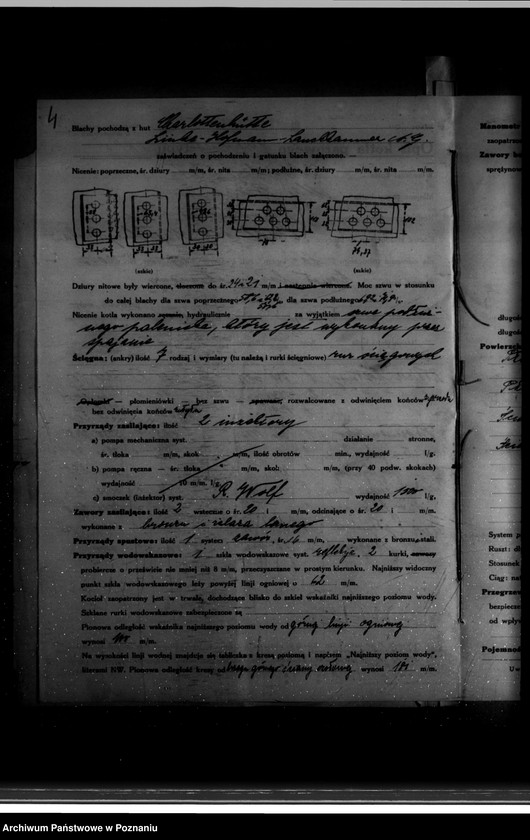 4
Blachy pochodzą z hut Charlottenhütte
Linke-Hofman-Lauchhammer A.G.
świadectwa o pochodzeniu i gatunku blach załączono. —
Nicenie: poprzeczne, śr. dziury m/m, śr. nita m/m; podłużne, śr. dziury m/m, śr. nita m/m.
(szkic) (szkic)
Dziury nitowe były wiercone, tłoczone do śr. 24 - 21 m/m i następnie wiercone. Moc szwu w stosunku
do całej blachy dla szwa poprzecznego dla szwa podłużnego
Nicenie kotła wykonano ręcznie, hydraulicznie za wyjątkiem szwa
nego paleniska, który jest wykonany przez
spajanie
Ścięgna: (ankry) ilość 7 rodzaj i wymiary (tu należą i rurki ścięgniowe) rur ścięgowych
— płomieniówki — bez szwu — rozwalcowane z odwinięciem końców
bez odwinięcia końców
Przyrządy zasilające: ilość 2 inżektory
a) pompa mechaniczna syst. działanie stronne,
śr. tłoka m/m, skok m/m, ilość obrotów min., wydajność l/g.
b) pompa ręczna — śr. tłoka m/m, skok m/m, (przy 40 podw. skokach)
wydajność 10 m/m. l/g.
c) smoczek (inżektor) syst. R. Wolf wydajność 1500 l/g,
Zawory zasilające: ilość 2 wsteczne o śr. 20 i m/m, odcinające o śr. 20 i m/m.
wykonane z bronzu i żelaza lanego
Przyrządy spustowe: ilość 1 system zawór, śr. 16 m/m, wykonane z bronzu, stali.
Przyrządy wodowskazowe: 1 szkła wodowskazowe syst. refleks. 2 kurki, zawory
probiercze o prześwicie nie mniej niż 8 m/m, przeczyszczane w prostym kierunku. Najniższy widoczny
punkt szkła wodowskazowego leży powyżej linji ogniowej o 62 m/m.
Kocioł zaopatrzony jest w trwałe, dochodzące blisko do szkieł wskaźniki najniższego poziomu wody.
Szklane rurki wodowskazowe zabezpieczone są
Pionowa odległość wskaźnika najniższego poziomu wody od górną linji ogniową
wynosi 100 m/m.
Na wysokości linji wodnej znajduje się tabliczka z kresą poziomą i napisem „Najniższy poziom wody",
literami NW. Pionowa odległość kresy od wynosi 181 m/m.
Manometr
zaopatrz
Zawory be
sprężynow
długoś
długoś
Powierzch
System p
Ruszt: dł
Stosunek
Ciąg: na
Przegrzew
bezpiecze
od wpływ
Pojemnoś
Uw
Archiwum Państwowe w Poznaniu